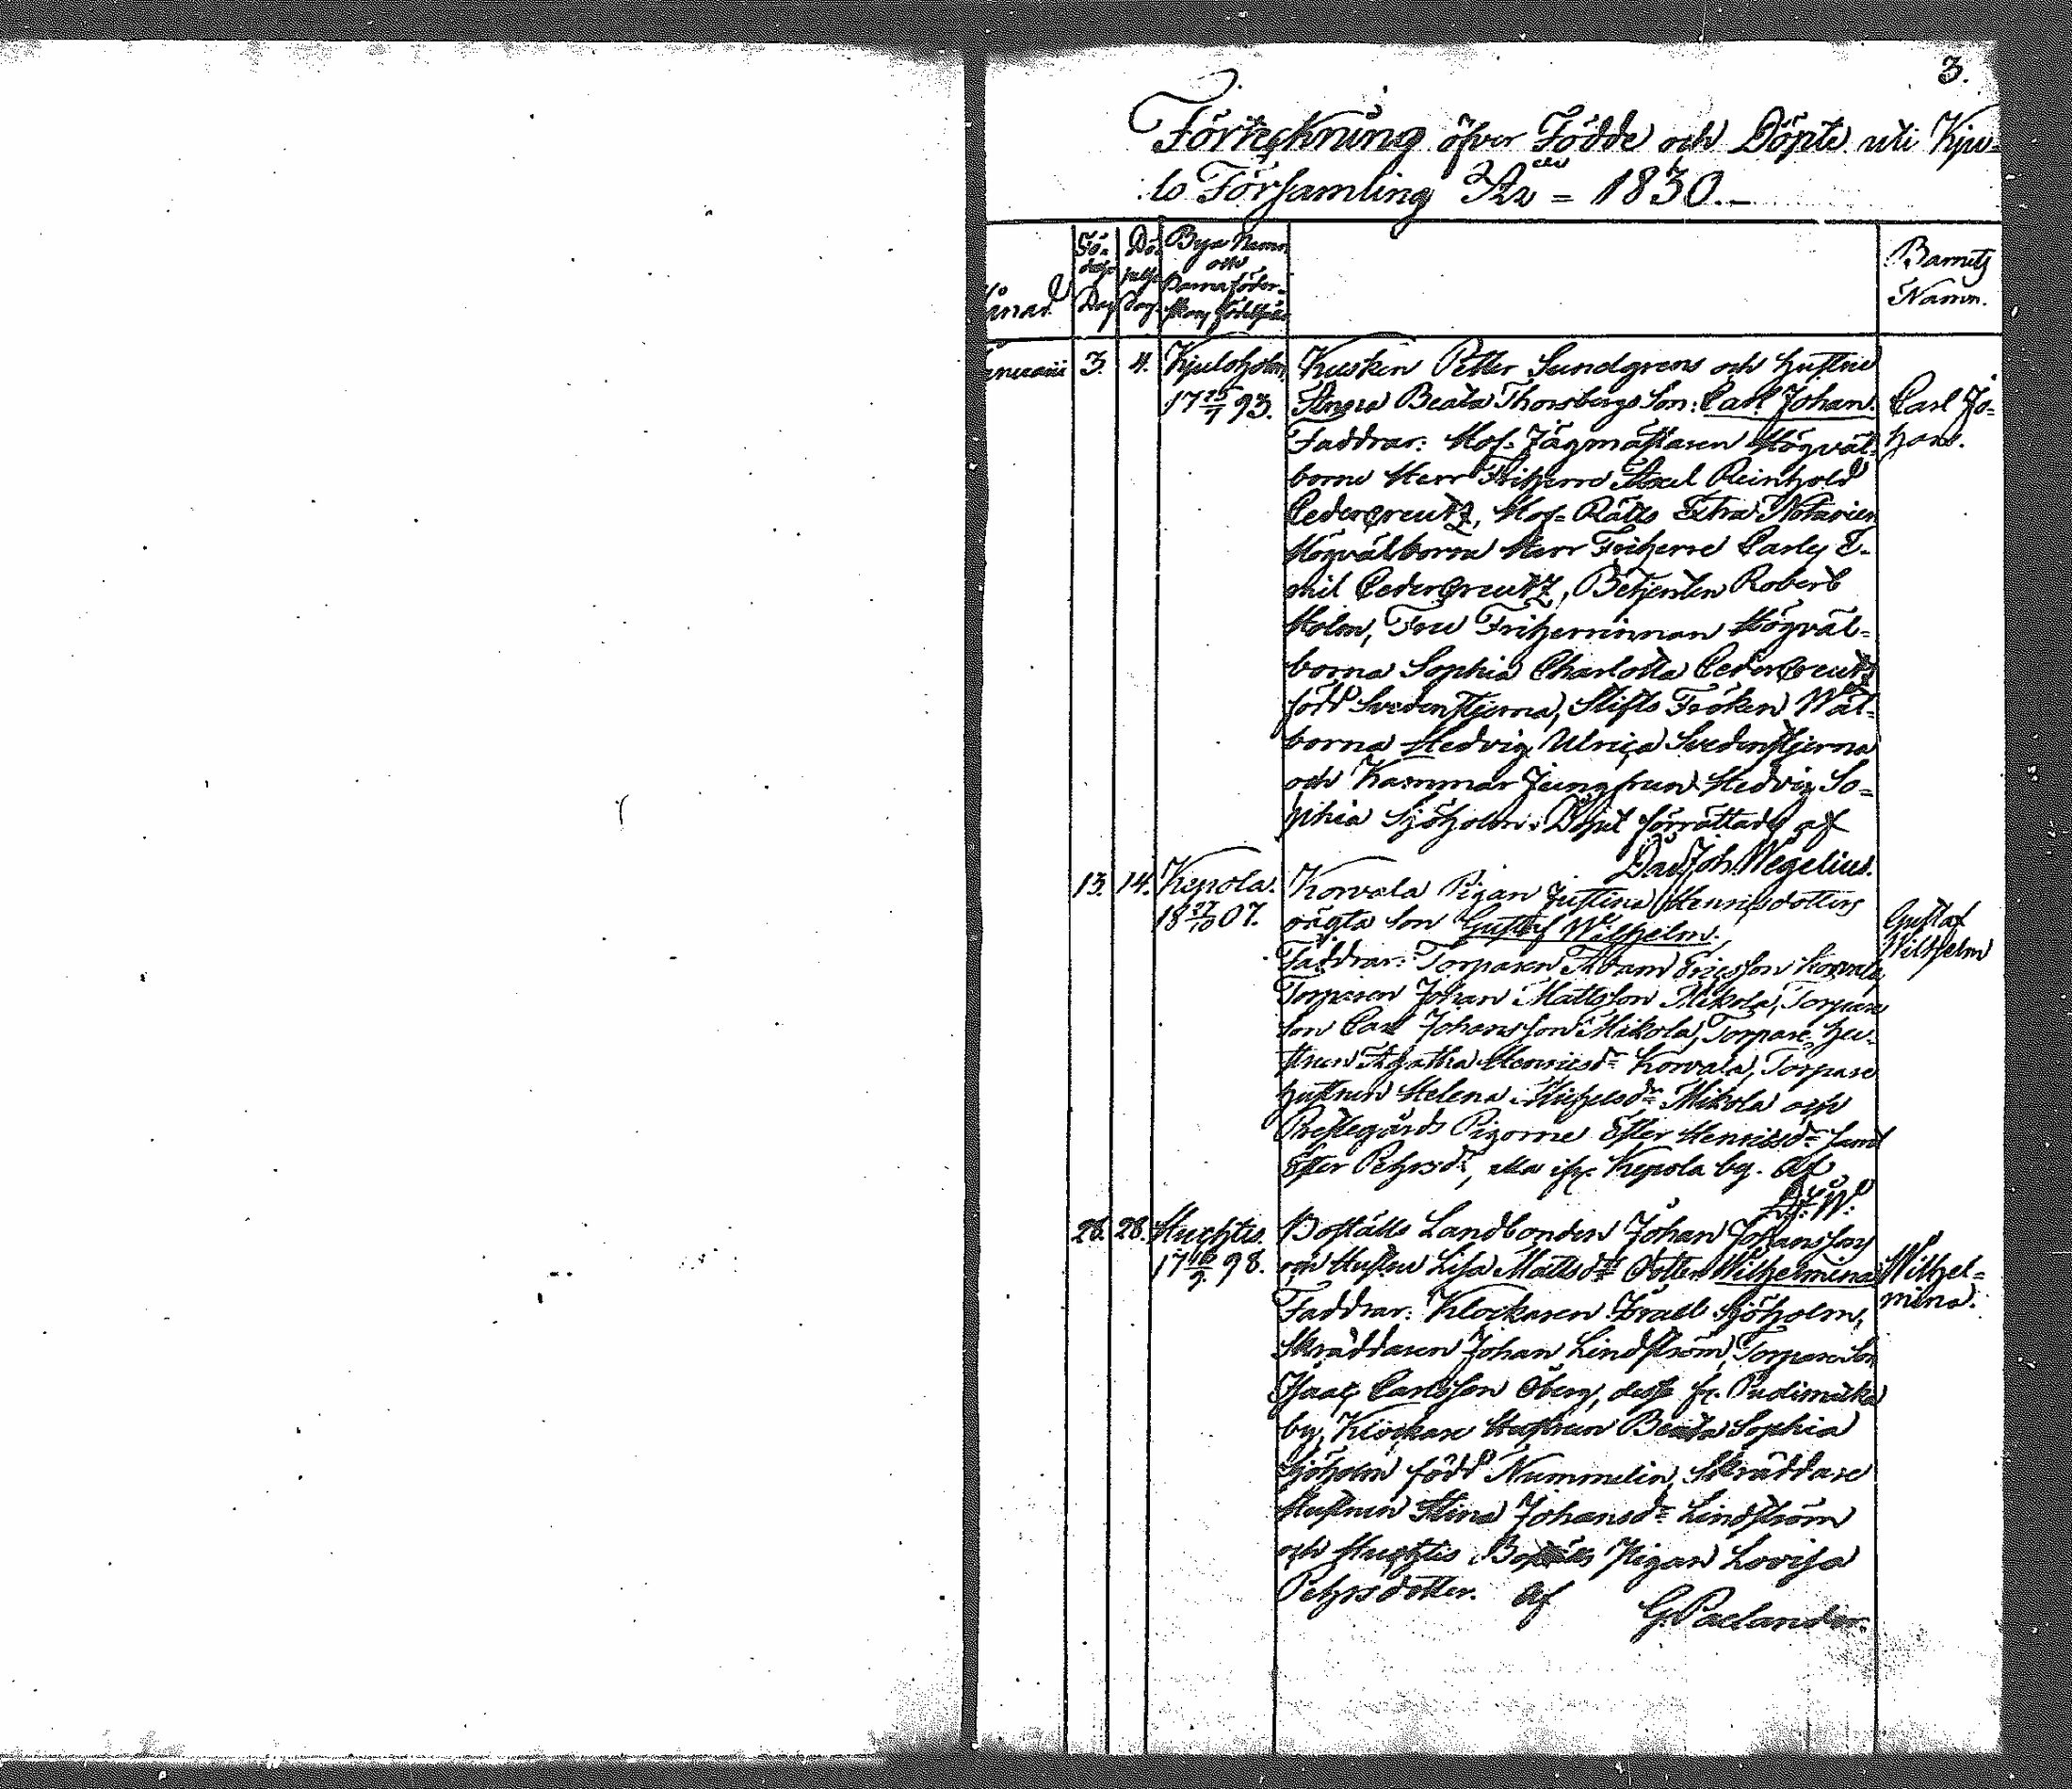 3.
Förteckning öfver Födde och Döpte uti Kju-
lo Församling År = 1830.
Fö- Dö- Bya Namn
och
Barnaföder-
Dag Dag
Barnets
Namn.
3. 4. Kjuloholm Kusken Petter Sundgrens och hustru
17 93. Anna Beata Thorsbergs Son: Carl Johan. Carl Jo-
Faddrar: Hof-Jägmästaren Högväl- han.
borne Herr Friherre Axel Reinhold
Cedercreutz, Hof-Rätts Extra Notarien
Högvälborne Herr Friherre Carl E-
mil Cedercreutz, Betjenten Robert
Holm, Fru Friherrinnan Högväl-
borna Sophia Charlotta Cedercreutz
född Svedenstjerna, Stifts Fröken Wäl-
borna Hedvig Ulrica Svedenstjerna
och Kammar Jungfrun Hedvig So-
phia Sjöholm. Dopet förrättades af
Dav. Joh. Wegelius.
13. 14. Kepola. Korvala Pigan Justina Henrisdotters
18 27/10 07. oägta Son Gustaf Wilhelm. Gustaf
Wilhelm
Faddrar: Torparen Adam Ericsson Korvala
Torparen Johan Mattsson Mikola, Torpare
Son Carl Johansson Mikola, Torpare hu-
strun Agatha Henricsdr Korvala, Torpare
hustrun Helena Michelsdr Mikola och
Prestegårds Pigorne Ester Henrisdr samt
Ester Pehrsdr, alla ifr. Kepola by. Af
D.J.W.
28. 28. Huchtis. Boställs Landbonden Johan Johansson
17 98. och Hustru Lisa Mattsdrs Dotter Wilhelmina Wilhel-
Faddrar: Klockaren Israel Sjöholm, mina.
Skräddaren Johan Lindström, Torpare Son
Isaac Carlsson Öberg, desse fr.
by, Klockare Hustrun Beata Sophia
Sjöholm född Nummelin, Skräddare
Hustrun Stina Johansdr Lindström
och Huchtis Boställs Pigan Lovisa
Pehrsdotter. Af G. Paelander.